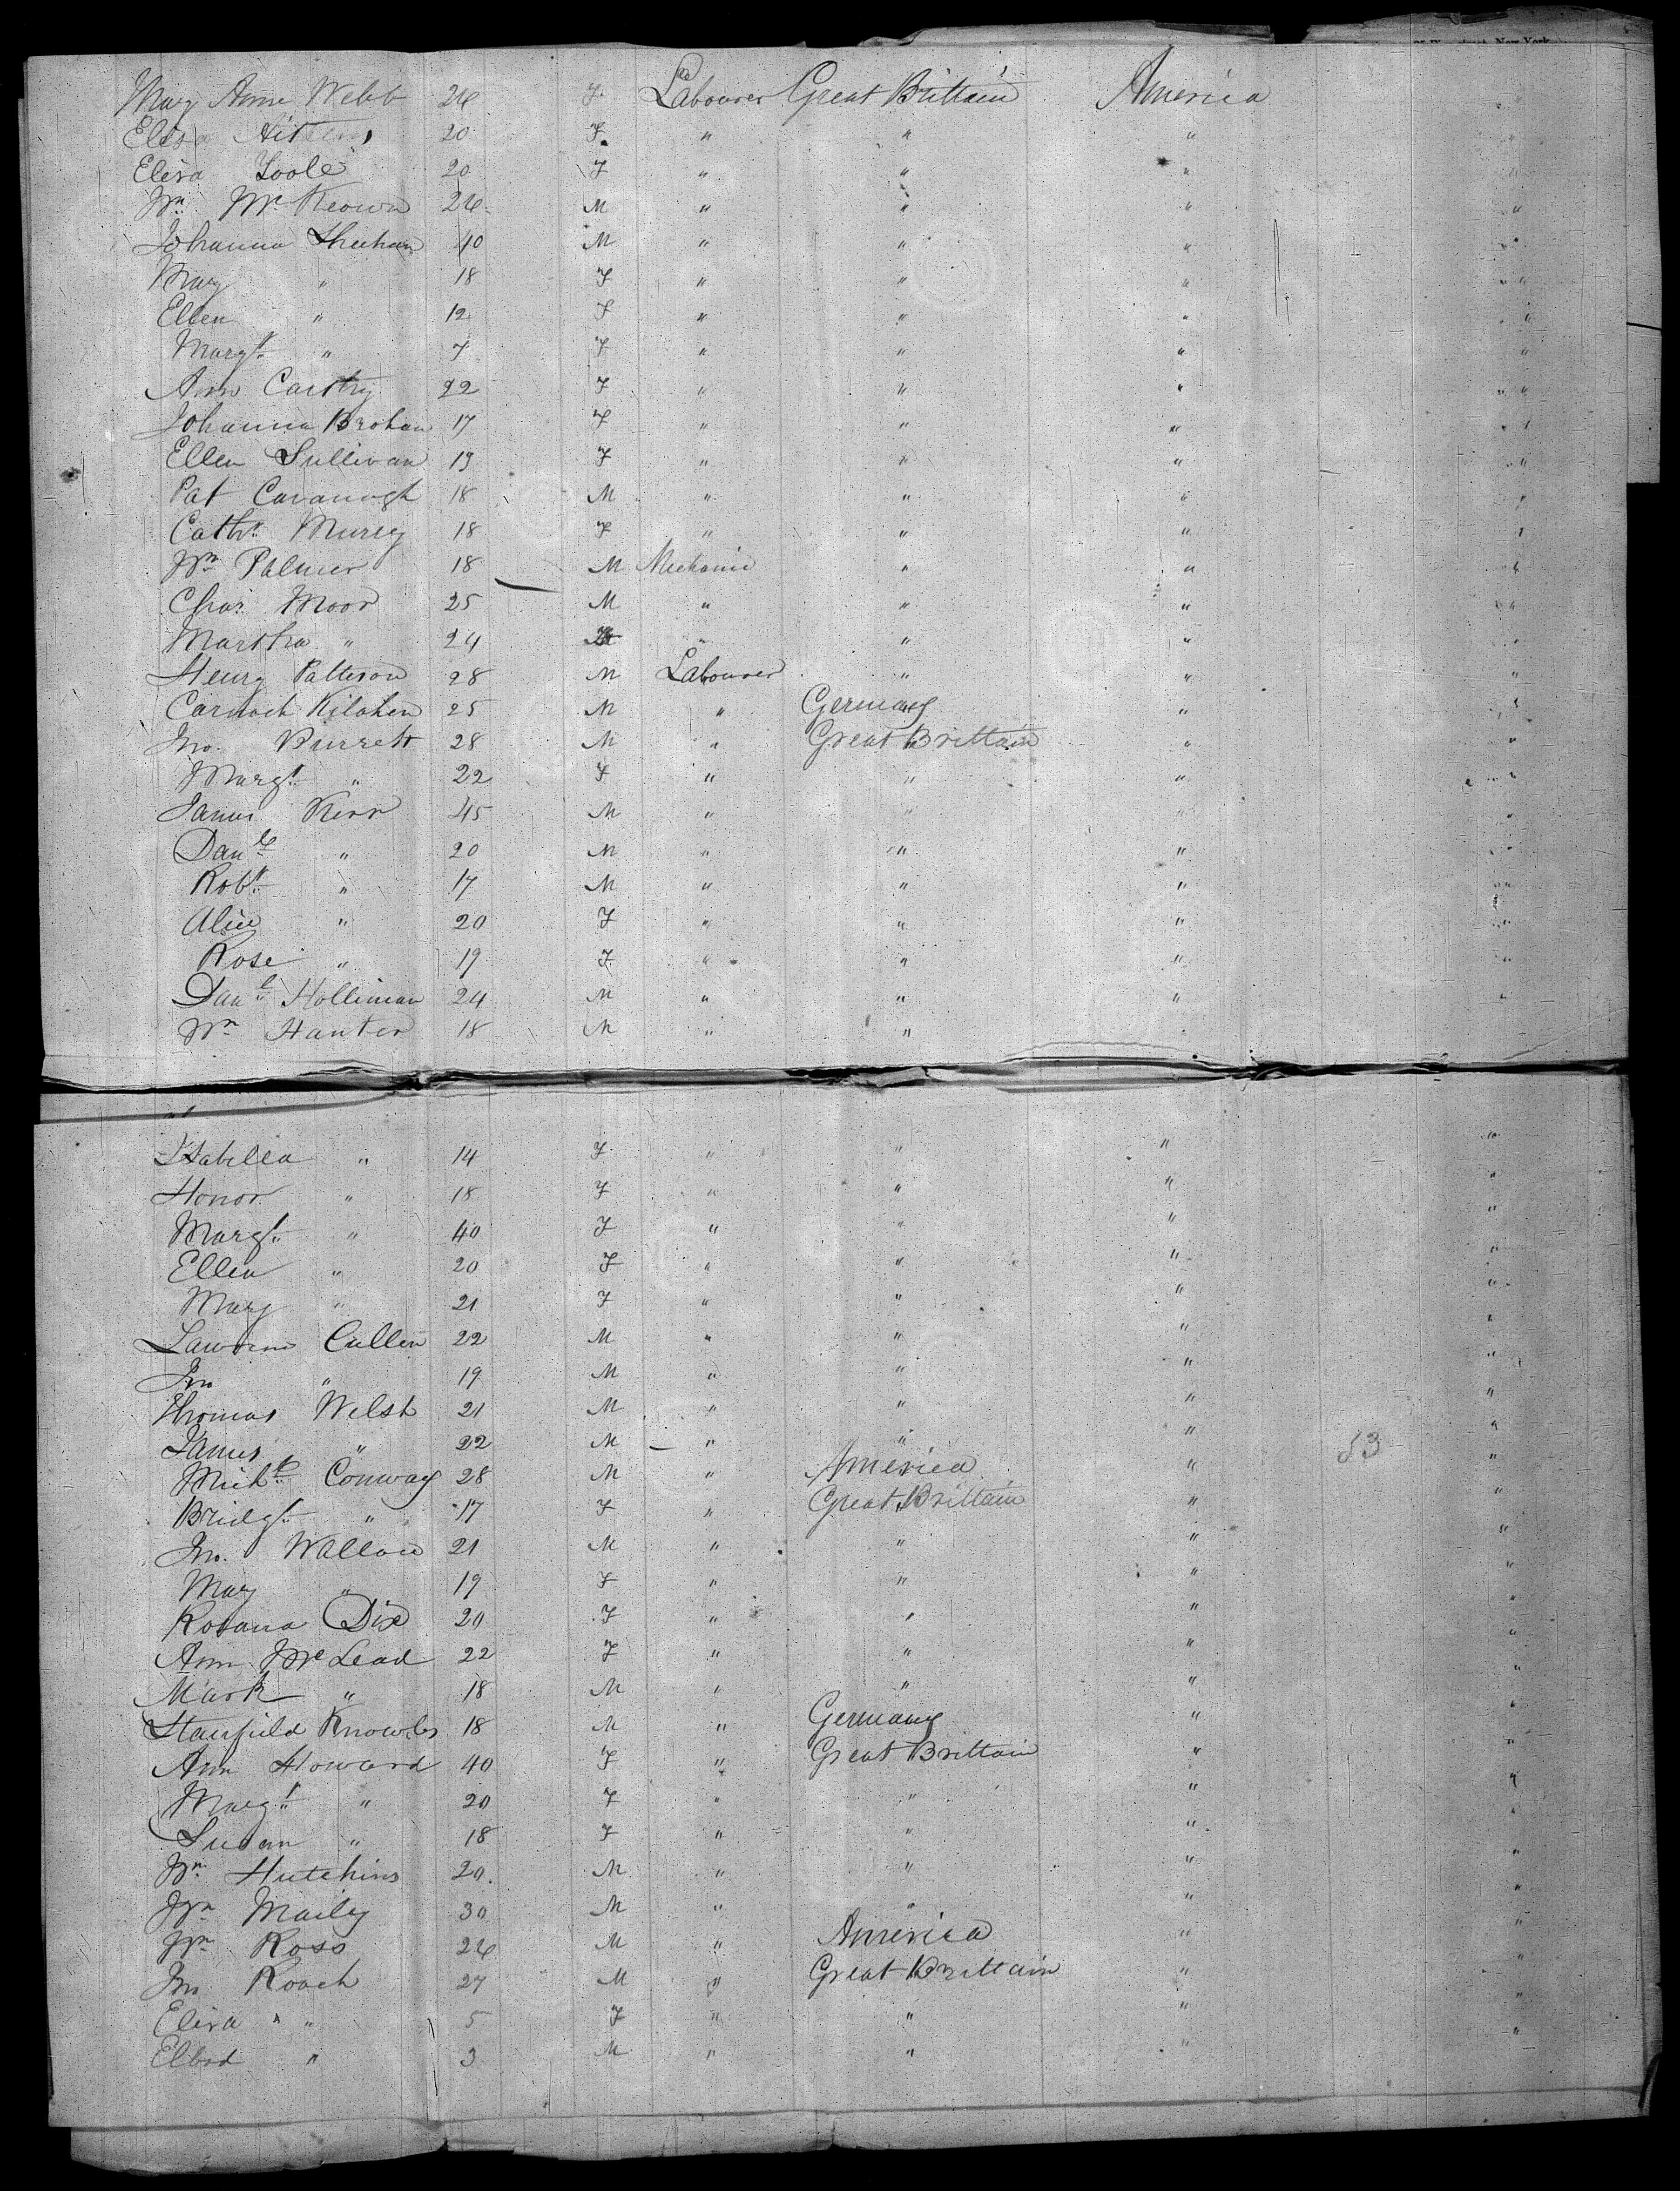 Mary Anne Webb 26 F Labourer Great Brittain America
Elisa 20 F " " " "
Elisa Toole 20 F " " " "
Wm McKeown 26 M " " " "
Johanna Sheehan 40 M " " " "
Mary " 18 F " " " "
Ellen " 12 F " " " "
Margt " 7 F " " " "
Ann Carthy 22 F " " " "
Johanna Brohan 17 F " " " "
Ellen Sullivan 19 F " " " "
Pat Cavanagh 18 M " " " "
Cathr Murey 18 F " " " "
Wm Palmer 18 M Mechanic " " "
Chas Moor 25 M " " " "
Martha " 24 " " " "
Henry Patterson 28 M Labourer " " "
Carnoch Kilohen 25 M " Germany " "
Jno. Burrett 28 M " Great Brittain " "
Margt " 22 F " " " "
James Kerr 45 M " " " "
Danl " 20 M " " " "
Robt " 17 M " " " "
Alice " 20 F " " " "
Rose " 19 F " " " "
Danl Holliman 24 M " " " "
Wm Hanter 18 M " "
Isabella " 14 F " " " "
Honor " 18 F " " " "
Margt " 40 F " " " "
Ellen " 20 F " " " "
Mary " 21 F " " " "
Lawrene Cullen 22 M " " " "
Jno " 19 M " " " "
Thomas Welsh 21 M " " " "
James " 22 M " " " "
Michl Conway 28 M " America " "
Bridgt " 17 F " Great Brittain " "
Jno. Wallace 21 M " " " "
Mary " 19 F " " " "
Rosana Dix 20 F " " " "
Ann McLead 22 F " " " "
Mark " 18 M " " " "
Stanfield Knowles 18 M " Germany " "
Ann Howard 40 F " Great Brittain " "
Margt " 20 F " " " "
Susan " 18 F " " " "
Wm Hutchins 20. M " " " "
Wm Maily 30 M " " " "
Wm Ross 26 M " America " "
Jno Roach 27 M " Great Brittain " "
Elisa " 5 F " " " "
" 3 M " " " "